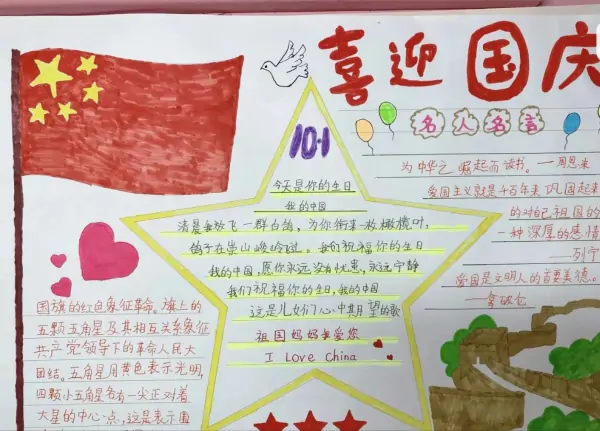 喜迎国庆
名人名言
10.1
今天是你的生日
我的中国
清晨我放飞一群白鸽,为你衔来一枚橄榄叶,
鸽子在崇山峻岭
我们祝福你的生日
我的中国,愿你永远没有忧患,永远宁静
我们祝福你的生日,我的中国
这是儿女们心中期望的歌
祖国妈妈我爱您
I Love China
为中华之崛起而读书。——周恩来
爱国主义就是千百年来巩固起来
的对自己祖国的
一种深厚的感情
——列宁
爱国是文明人的首要美德。
国旗的红色象征革命。旗上的
五颗五角星及其相互关系象征
共产党领导下的革命人民大
团结。五角星用黄色表示光明,
四颗小五角星各有一尖正对着
大星的中心点,这是表示围